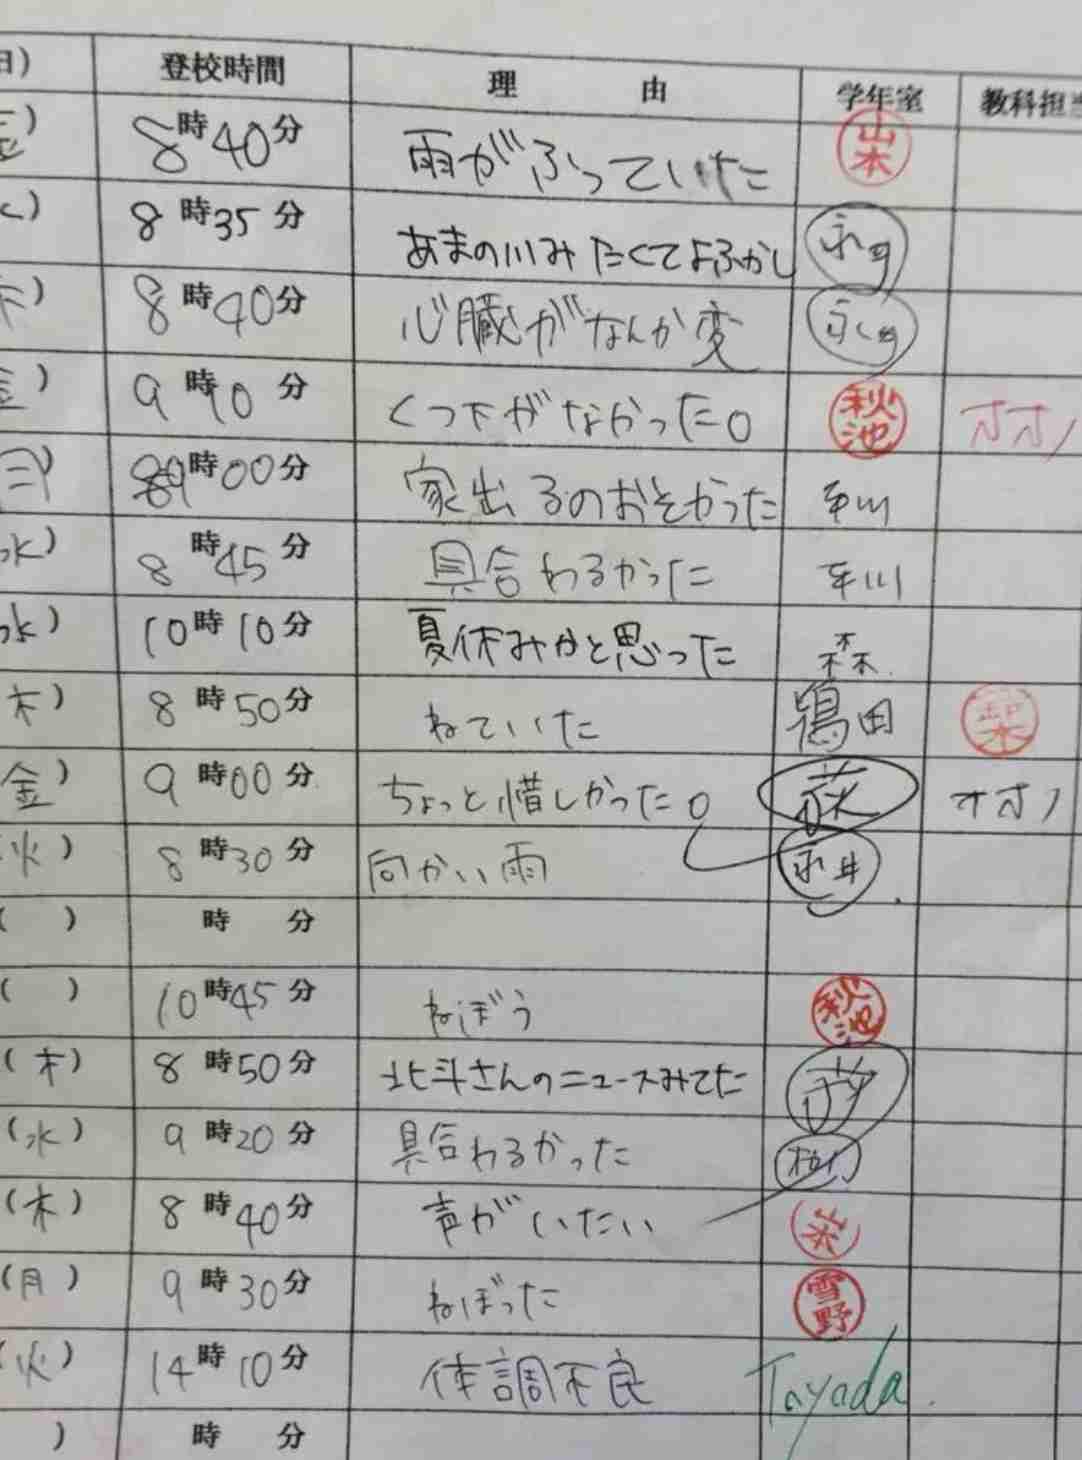 日) 登校時間 理由 学年室 教科担当
金) 8時40分 雨がふっていた 山本
8時35分 あまの川みたくてよふかし
木) 8時40分 心臓がなんか変
金) 9時10分 くつ下がなかった。 秋池 オオノ
時00分 家出るのおそかった 平川
水) 8時45分 具合わるかった 平川
水) 10時10分 夏休みかと思った 森
木) 8時50分 ねていた 鴇田
金) 9時00分 ちょっと惜しかった。 オオノ
火) 8時30分 向かい雨 永井
( ) 時 分
( ) 10時45分 ねぼう 秋池
(木) 8時50分 北斗さんのニュースみてた
(水) 9時20分 具合わるかった
(木) 8時40分 声がいたい
(月) 9時30分 ねぼった 雪野
火) 14時10分 体調不良 Tayada
) 時 分